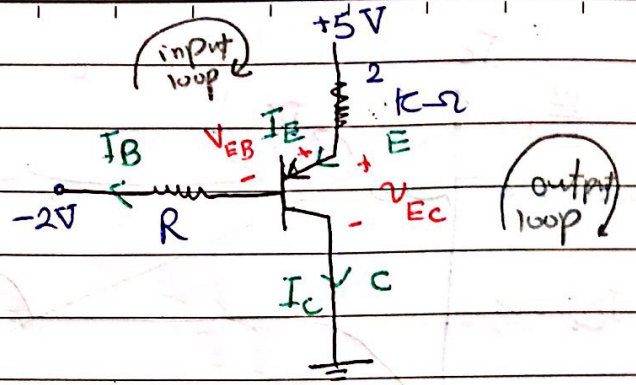 +5V
input
loop
2
K-Ω
IB
VEB
IE
+
E
-
+
-2V
R
VEC
-
output
loop
IC
C